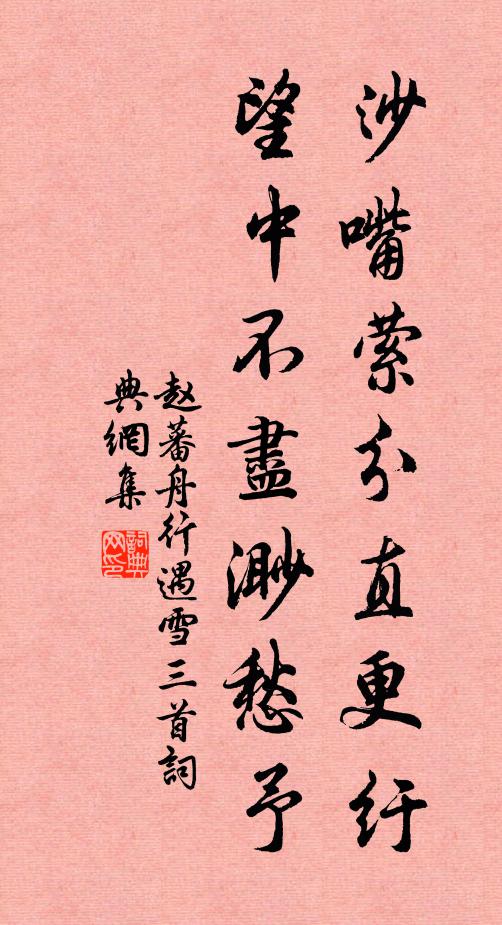 沙嘴萦分直更纡
望中不盡渺愁予
赵蕃舟行遇雪三首詞
典網集
詞典网印